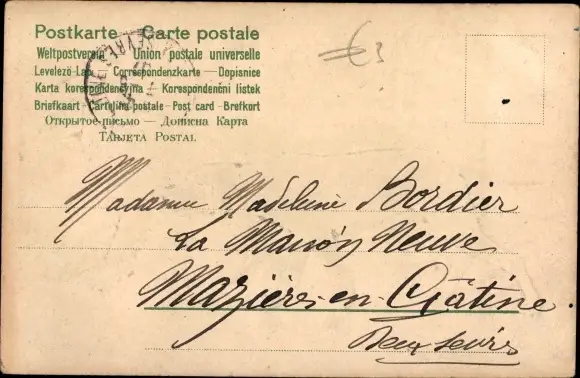 Postkarte — Carte postale
Weltpostverein — Union postale universelle
Levelező-Lap — Correspondenzkarte — Dopisnice
Karta korespondencyjna — Korespondenční listek
Briefkaart — Cartolina postale — Post card — Brefkort
Открытое письмо — Дописна Карта
Tarjeta Postal
€ 3
Madame Madeleine Bordier
La Maison Neuve
Mazières-en-Gâtine
Deux Sèvres